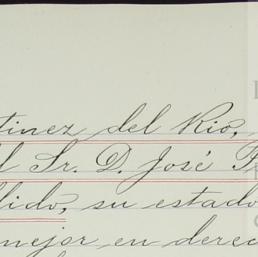 tinez del Rio,
l Sr. D. José
llido, su estado
mejor en derec